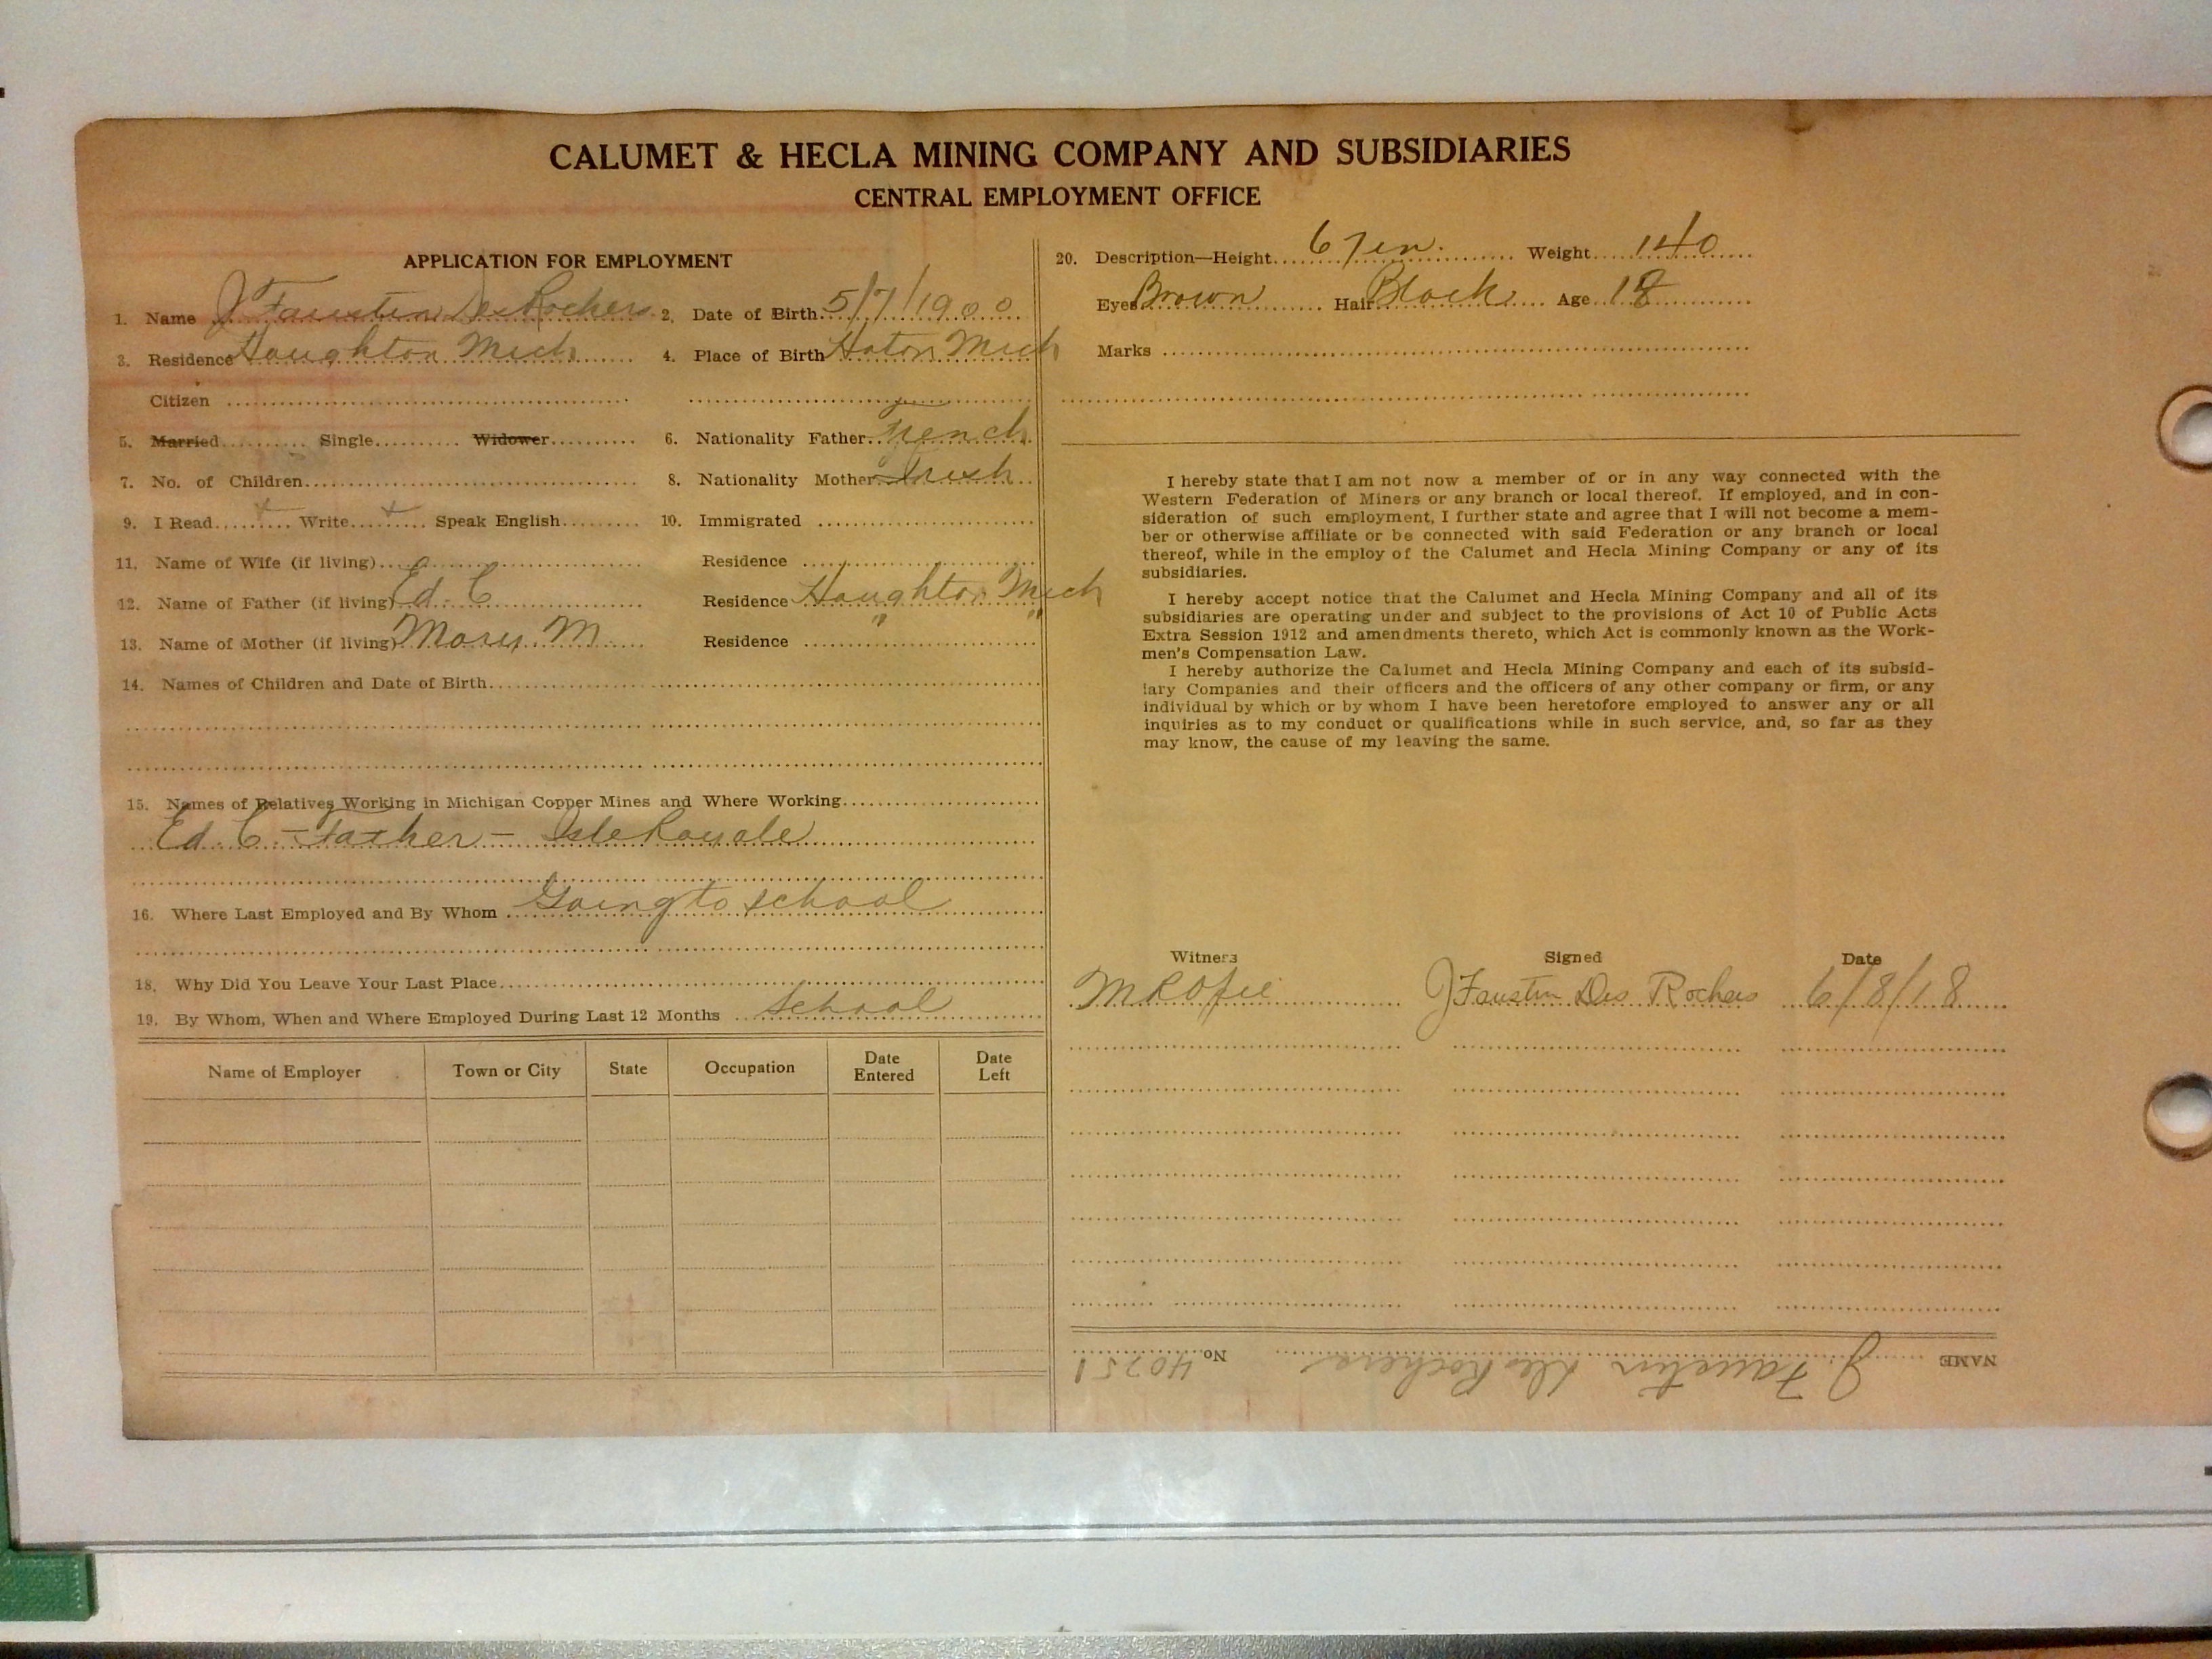 CALUMET & HECLA MINING COMPANY AND SUBSIDIARIES
CENTRAL EMPLOYMENT OFFICE
APPLICATION FOR EMPLOYMENT
1. Name J Faustin Des Rochers 2. Date of Birth 5/7/1900
3. Residence Houghton Mich 4. Place of Birth Hoton Mich
Citizen
5. Married Single Widower 6. Nationality Father French
7. No. of Children 8. Nationality Mother Irish
9. I Read + Write + Speak English 10. Immigrated
11. Name of Wife (if living) Residence
12. Name of Father (if living) Ed. C Residence Houghton Mich
13. Name of Mother (if living) Mary M Residence " "
14. Names of Children and Date of Birth
15. Names of Relatives Working in Michigan Copper Mines and Where Working
Ed. C - Father - Isle Royale
16. Where Last Employed and By Whom Going to school
18. Why Did You Leave Your Last Place
19. By Whom, When and Where Employed During Last 12 Months School
Name of Employer Town or City State Occupation Date Entered Date Left
20. Description—Height 67in. Weight 140
Eyes Brown Hair Black Age 18
Marks
I hereby state that I am not now a member of or in any way connected with the
Western Federation of Miners or any branch or local thereof. If employed, and in con-
sideration of such employment, I further state and agree that I will not become a mem-
ber or otherwise affiliate or be connected with said Federation or any branch or local
thereof, while in the employ of the Calumet and Hecla Mining Company or any of its
subsidiaries.
I hereby accept notice that the Calumet and Hecla Mining Company and all of its
subsidiaries are operating under and subject to the provisions of Act 10 of Public Acts
Extra Session 1912 and amendments thereto, which Act is commonly known as the Work-
men's Compensation Law.
I hereby authorize the Calumet and Hecla Mining Company and each of its subsid-
iary Companies and their officers and the officers of any other company or firm, or any
individual by which or by whom I have been heretofore employed to answer any or all
inquiries as to my conduct or qualifications while in such service, and, so far as they
may know, the cause of my leaving the same.
Witness Signed Date
J Faustin Des Rochers 6/8/18
NAME J. Faustin Des Rochers No. 40251